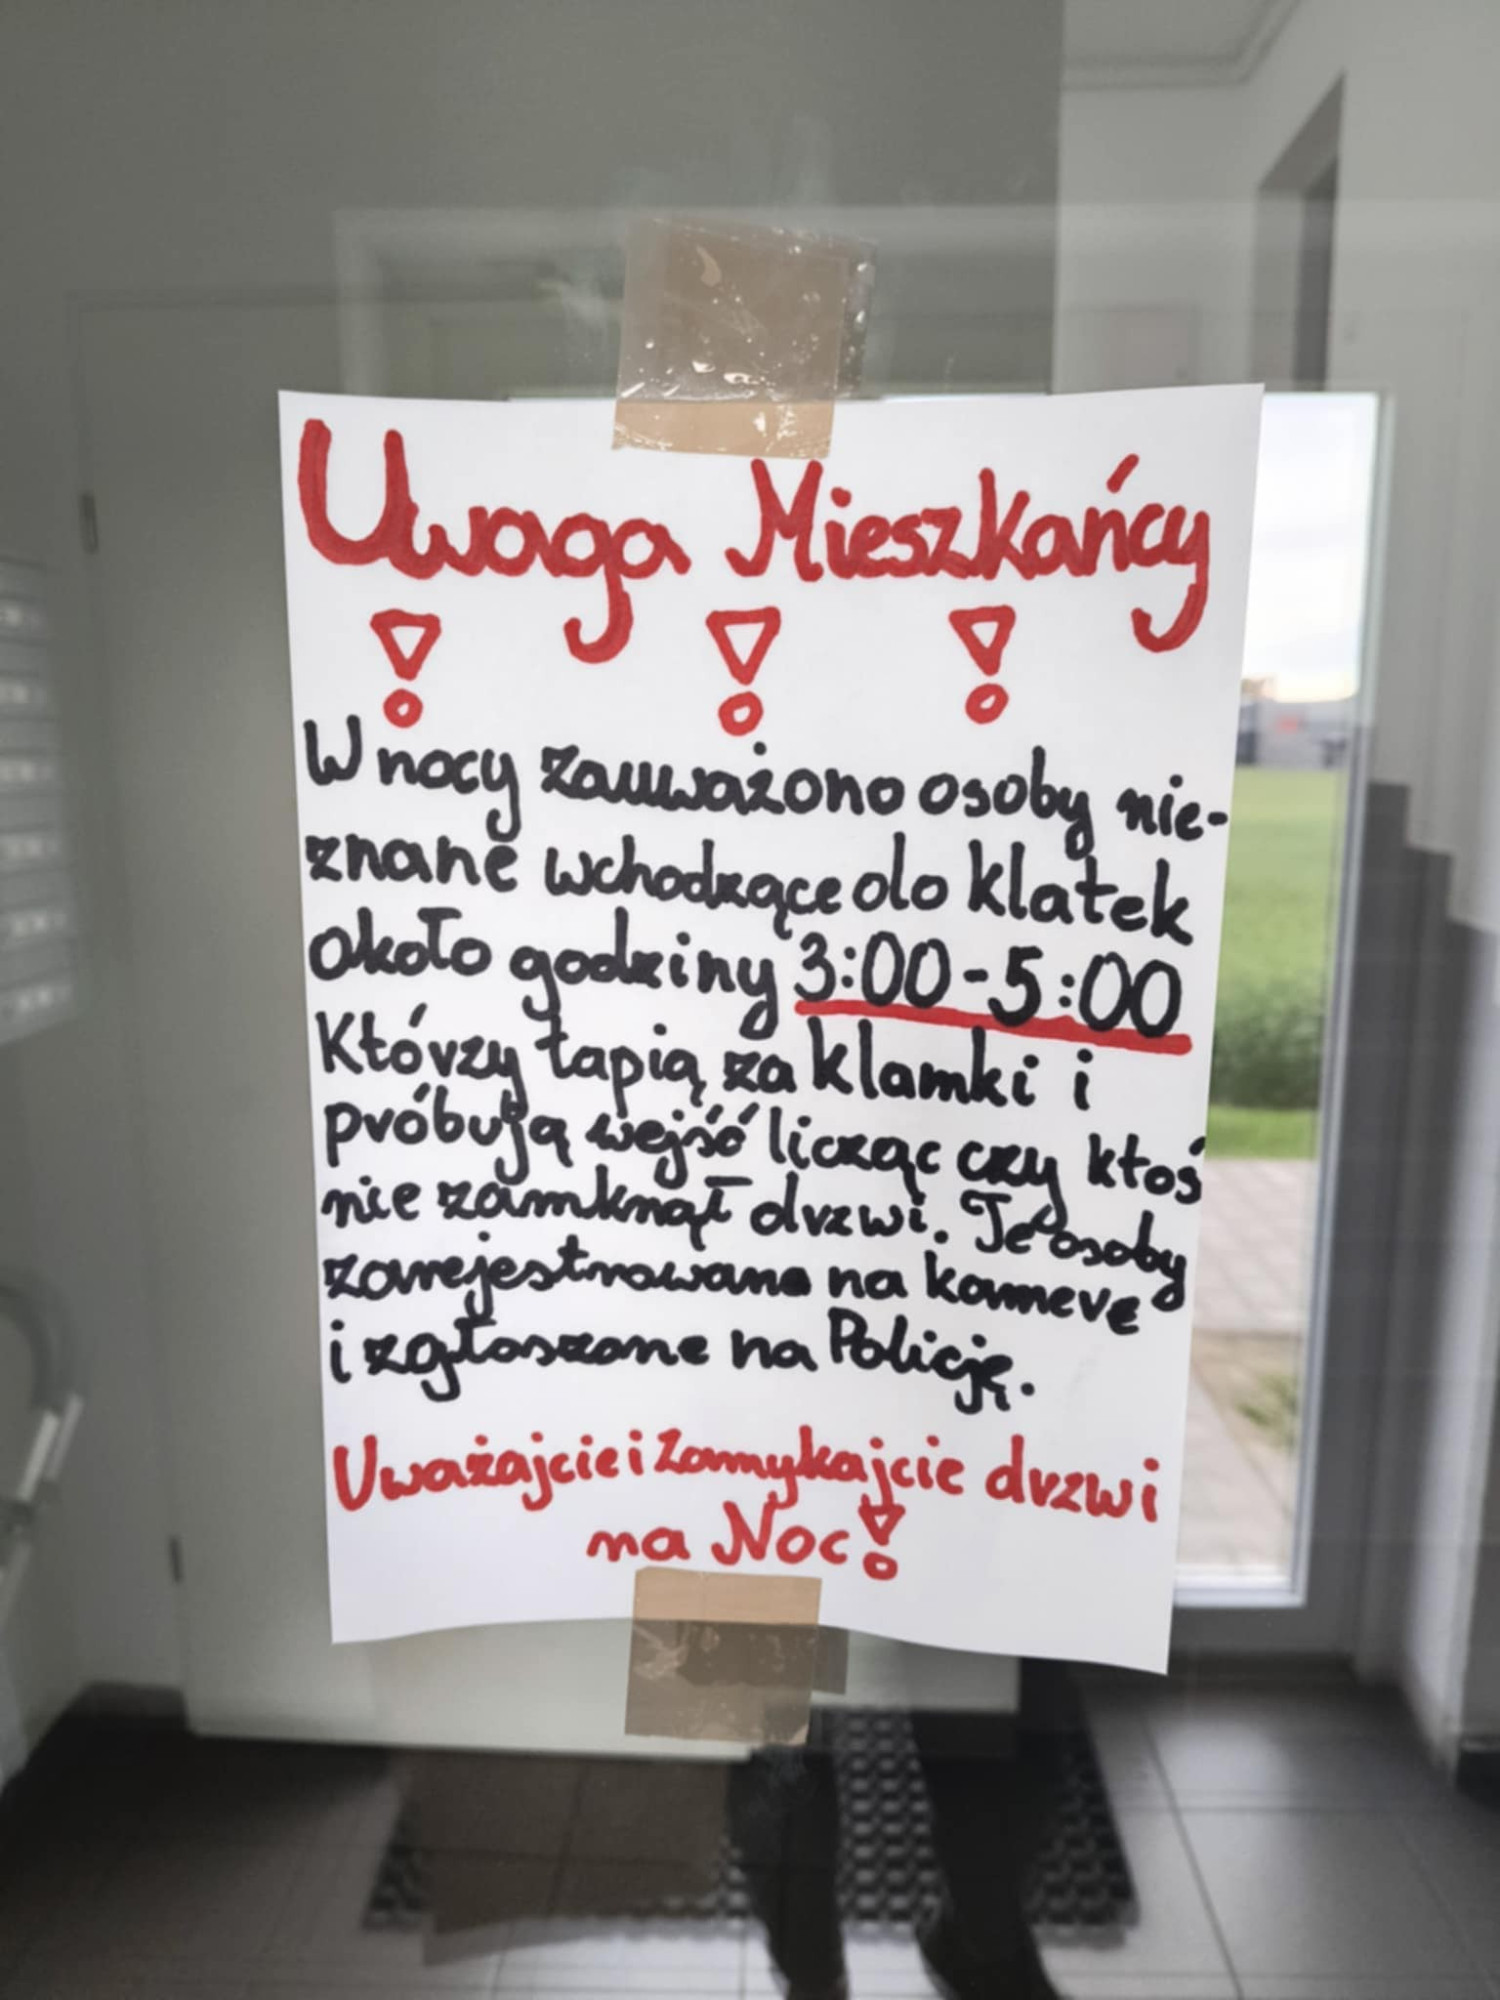 Uwaga Mieszkańcy
! ! !
W nocy zauważono osoby nie-
znane wchodzące do klatek
około godziny 3:00-5:00
Którzy łapią za klamki i
próbują wejść licząc czy ktoś
nie zamknął drzwi. Te osoby
zarejestrowano na kamerę
i zgłoszone na Policję.
Uważajcie i zamykajcie drzwi
na Noc!